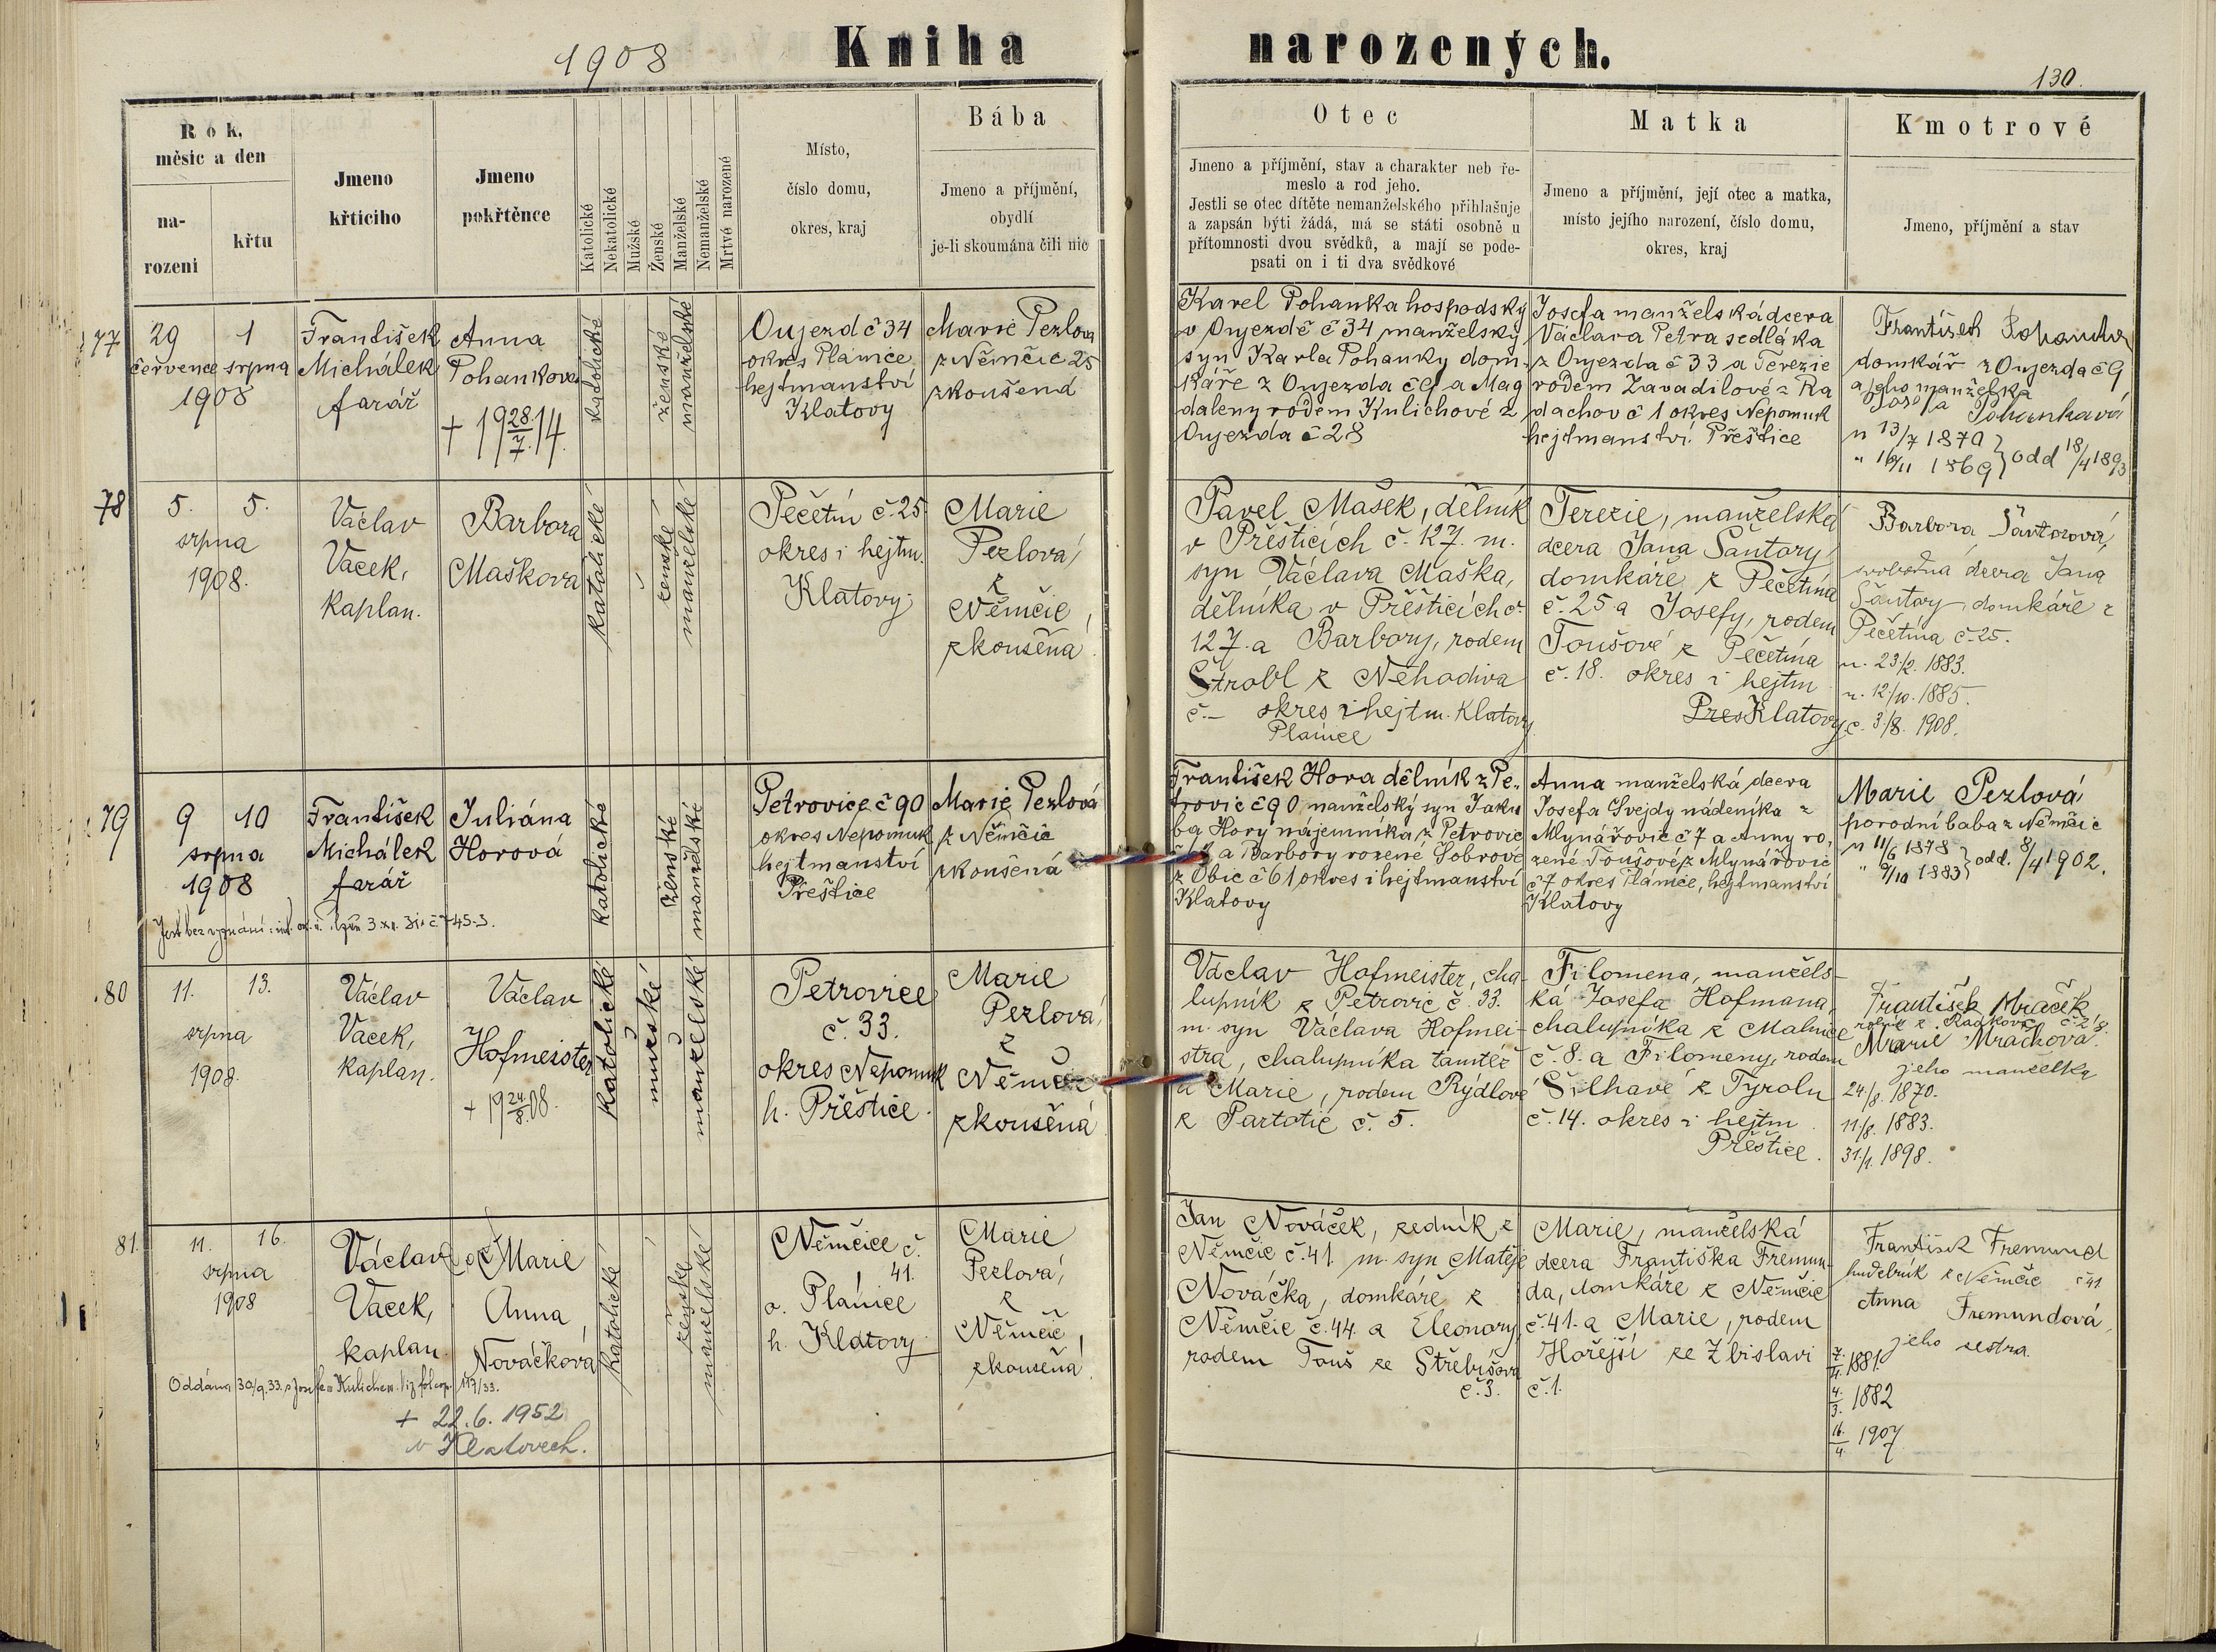 1908
Kniha narozených.
130.
Rok, měsíc a den
narozeni
křtu
Jmeno křticího
Jmeno pokřtěnce
Katolické
Nekatolické
Mužské
Ženské
Manželské
Nemanželské
Mrtvé narozené
Místo,
číslo domu,
okres, kraj
Bába
Jmeno a příjmění,
obydlí
je-li skoumána čili nic
Otec
Jmeno a příjmění, stav a charakter neb ře-
meslo a rod jeho.
Jestli se otec dítěte nemanželského přihlašuje
a zapsán býti žádá, má se státi osobně u
přítomnosti dvou svědků, a mají se pode-
psati on i ti dva svědkové
Matka
Jmeno a příjmění, její otec a matka,
místo jejího narození, číslo domu,
okres, kraj
Kmotrové
Jmeno, příjmění a stav
77
29 1
července srpna
1908
František
Michálek
farář
Anna
Pohankova
+ 19 28./7. 14.
katolické
ženské
manželské
Oujezd č 34
okres Plánice
hejtmanství
Klatovy
Marie Pezlova
z Němčic 25
zkoušená
Karel Pohanka hospodský
v Oujezdě č 34 manželský
syn Karla Pohanky dom-
káře z Oujezda č 9 a Mag
daleny rodem Kulichové z
Oujezda č 28
Josefa manželská dcera
Václava Petra sedláka
z Oujezda č 33 a Terezie
rodem Zavadilové z Ra
dachov č 1 okres Nepomuk
hejtmanství Přeštice
František Pohanka
domkář z Oujezda č 9
a jeho manželka
Josefa Pohankavá
n 13/7 1870
" 16/11 1869 } odd 18/4 1893
78
5. 5.
srpna
1908.
Václav
Vacek,
kaplan.
Barbora
Maškova
katolické
ženské
manželské
Pečetín č. 25
okres i hejtm.
Klatovy
Marie
Pezlová
z
Němčic,
zkoušená.
Pavel Mašek, dělník
v Přešticích č. 127. m.
syn Václava Maška,
dělníka v Přešticích č.
127. a Barbory, rodem
Štrobl z Nehodiva
č. – okres i hejtm. Klatovy
Plánice
Terezie, manželská
dcera Jana Šantory
domkáře z Pečetína
č. 25 a Josefy, rodem
Toušové z Pečetína
č. 18. okres i hejtm
Pres Klatovy
Barbora Šantorová,
svobodná dcera Jana
Šantory, domkáře z
Pečetína č. 25.
n. 23./2. 1883.
n. 12/10. 1885.
c. 3/8. 1908.
79
9 10
srpna
1908
František
Michálek
farář
Juliána
Horová
katolické
ženské
manželské
Petrovice č 90
okres Nepomuk
hejtmanství
Přeštice
Marie Pezlová
z Němčic
zkoušená
František Hora dělník z Pe-
trovic č 90 manželský syn Jaku
ba Hory nájemníka z Petrovic
a Barbory rozené Sobrové
z Obic č 61 okres i hejtmanství
Klatovy
Anna manželská dcera
Josefa Švejdy nádeníka z
Mlynářovic č 7 a Anny ro-
zené Toušové z Mlynářovic
č 7 okres Plánice, hejtmanství
Klatovy
Marie Pezlová
porodní baba z Němčic
n 11/6 1878
" 9/10 1883 } odd. 8/4 1902.
Jest bez vyznání
80
11. 13.
srpna
1908.
Václav
Vacek,
kaplan.
Václav
Hofmeister
+ 19 24/8. 08.
katolické
mužské
manželské
Petrovice
č. 33.
okres Nepomuk
h. Přeštice.
Marie
Pezlová,
z
Němčic
zkoušená
Václav Hofmeister, cha-
lupník z Petrovic č. 33.
m. syn Václava Hofmei-
stra, chalupníka tamtéž
a Marie, rodem Rýdlové
z Partotic č. 5.
Filomena, manžels-
ká Josefa Hofmana,
chalupníka z Malnice
č. 8. a Filomeny, rodem
Šilhavé z Tyrolu
č. 14. okres i hejtm
Přeštice.
František Mraček
rolník z Radkovic č. 28.
Marie Mračkova
jeho manželka
24./8. 1870.
11/8. 1883.
31./1. 1898.
81.
11. 16.
srpna
1908
Václav
Vacek,
kaplan
Marie
Anna
Nováčková
katolické
ženské
manželské
Němčice č.
41.
o. Plánice
h. Klatovy
Marie
Pezlová,
z
Němčic,
zkoušená.
Jan Nováček, zedník z
Němčic č. 41. m. syn Matěje
Nováčka, domkáře z
Němčic č. 44. a Eleonory,
rodem Touš ze Střebišova
č. 3.
Marie, manželská
dcera Františka Fremun-
da, domkáře z Němčic
č. 41. a Marie, rodem
Hořejší ze Zbislavi
č. 1.
František Fremund
hudebník z Němčic č 41
Anna Fremundová,
jeho sestra.
7./11. 1881.
4./3. 1882
16./4. 1907
Oddána 30/9. 33. s Josefem Kulichem
+ 22. 6. 1952
v Klatovech.